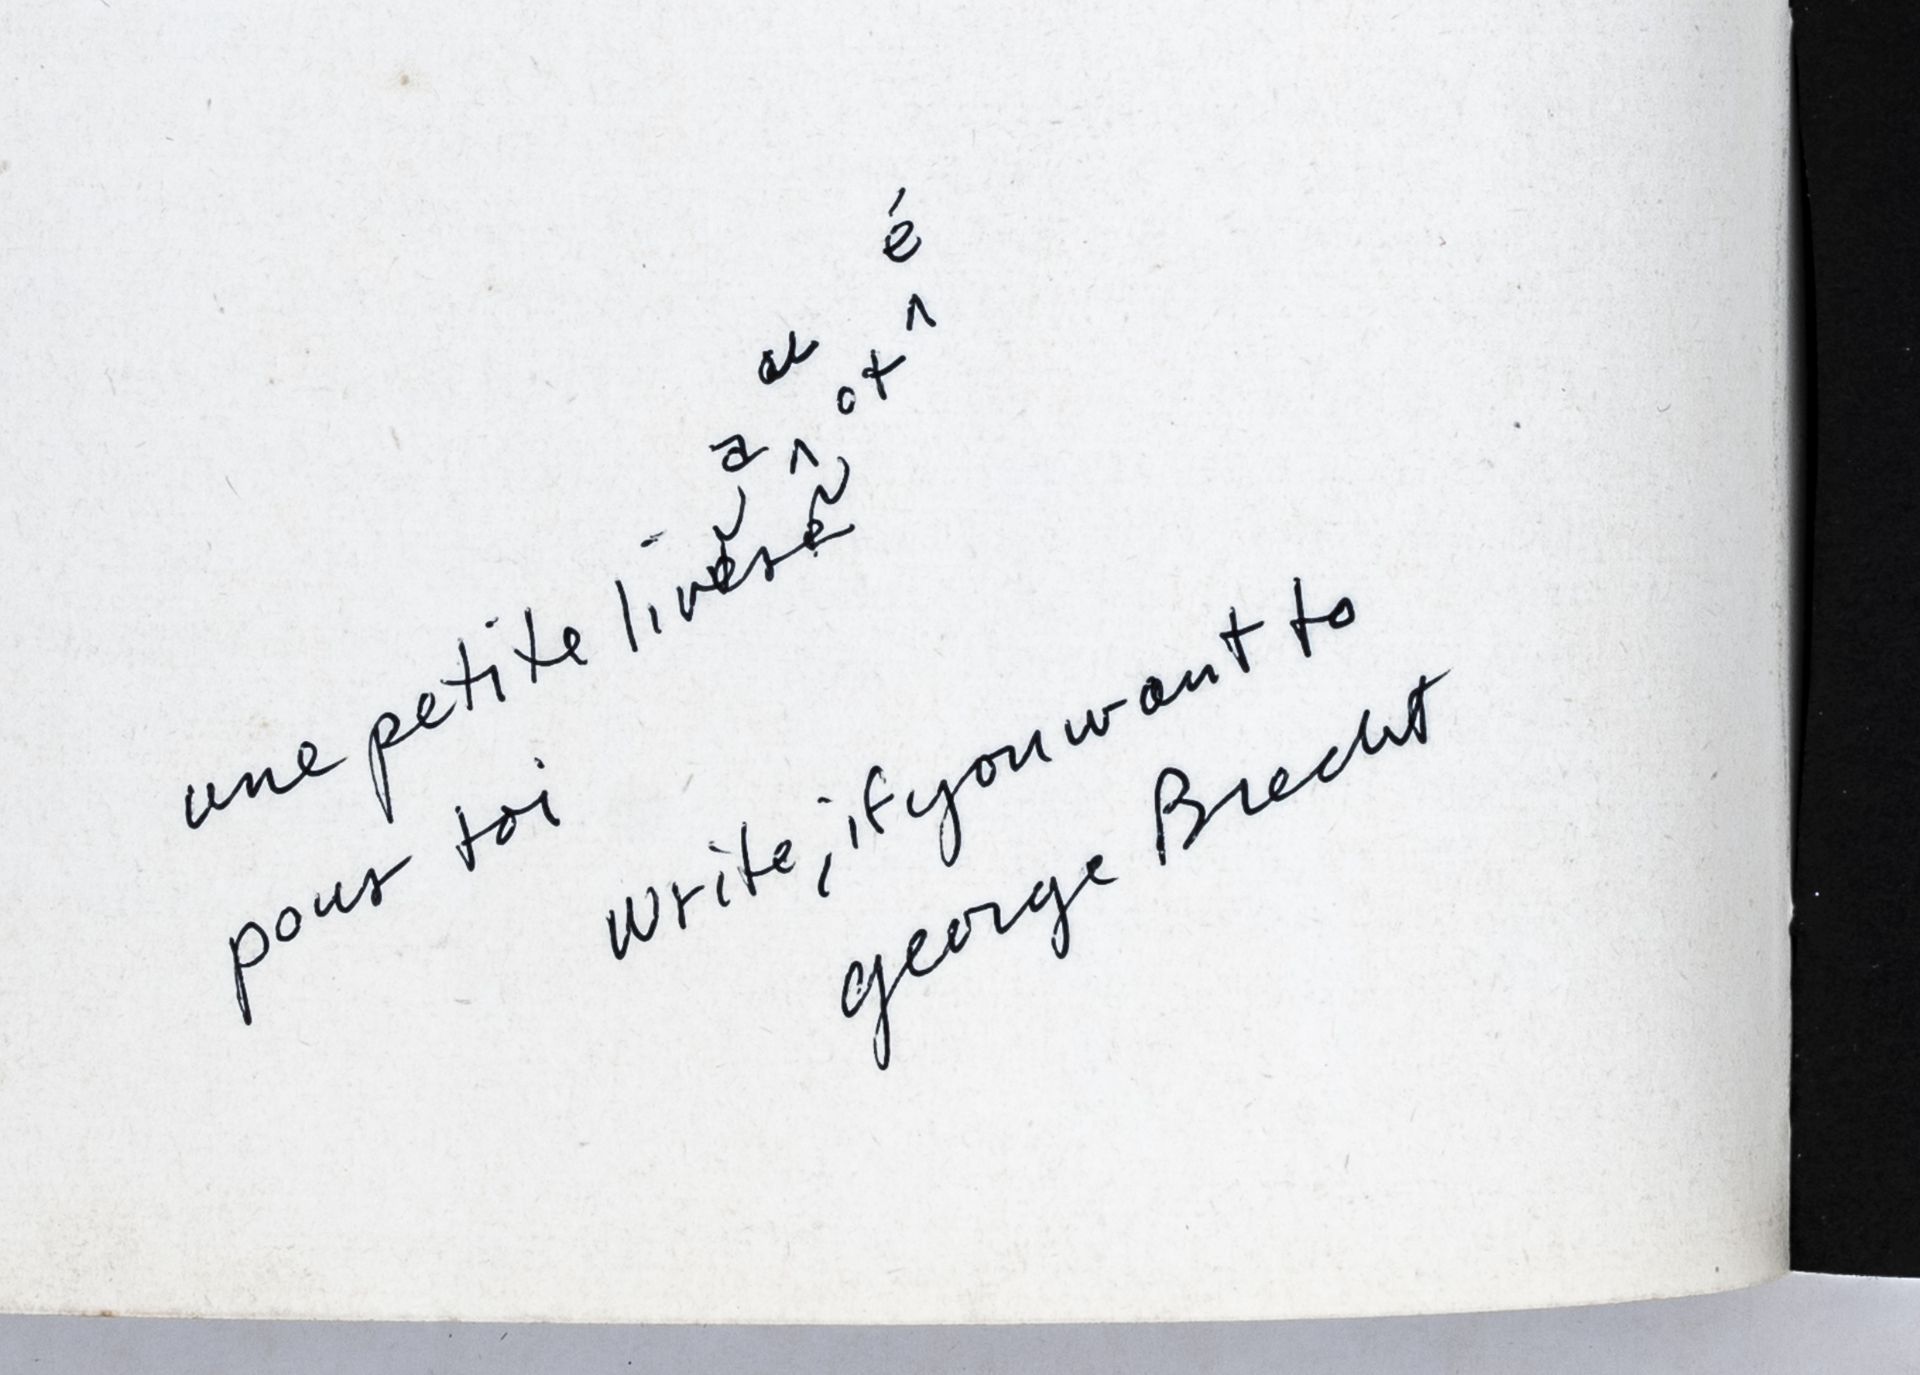 é
^
a ^ ot
une petite
pour toi
write, if you want to
george Brecht